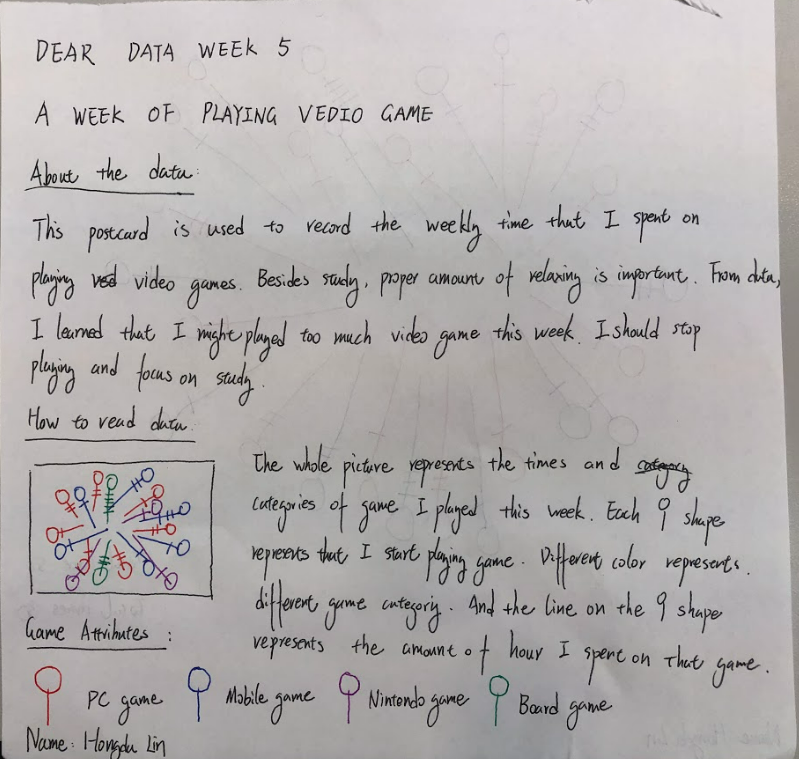 DEAR DATA WEEK 5
A WEEK OF PLAYING VEDIO GAME
About the data:
This postcard is used to record the weekly time that I spent on
playing ved video games. Besides study, proper amount of relaxing is important. From data,
I learned that I might played too much video game this week. I should stop
playing and focus on study.
How to read data.
The whole picture represents the times and category
categories of game I played this week. Each shape
represents that I start playing game. Different color represents.
different game category. And the line on the shape
represents the amount of hour I spent on that game.
Game Attributes :
PC game Mobile game Nintendo game Board game
Name: Hongda Lin